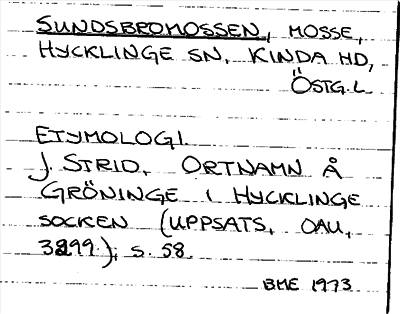 SUNDSBROMOSSEN, MOSSE,
HYCKLINGE SN, KINDA HD,
ÖSTG. L
ETYMOLOGI.
J. STRID, ORTNAMN Å
GRÖNINGE I HYCKLINGE
SOCKEN (UPPSATS, OAU,
3899), s. 58.
BME 1973